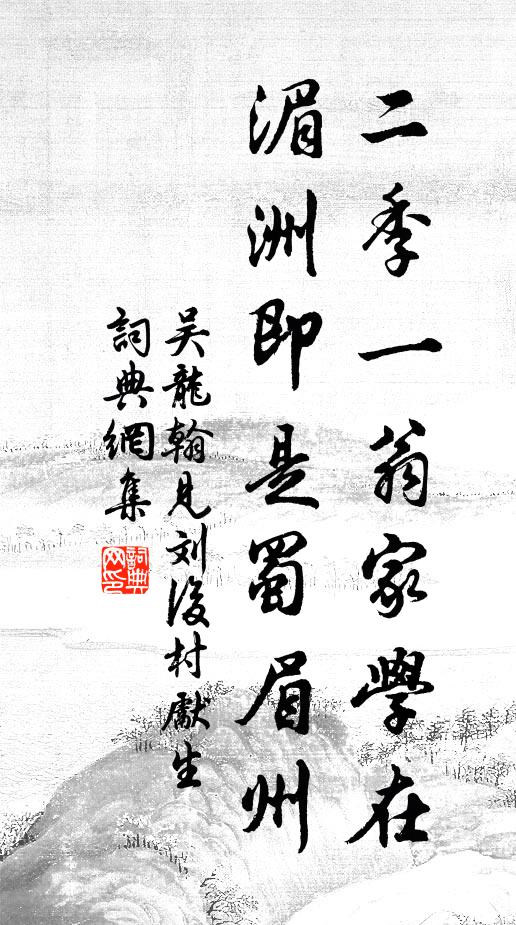 二季一翁家學在
湄洲即是蜀眉州
吴龍翰見刘後村獻生
詞典網集
詞典网印